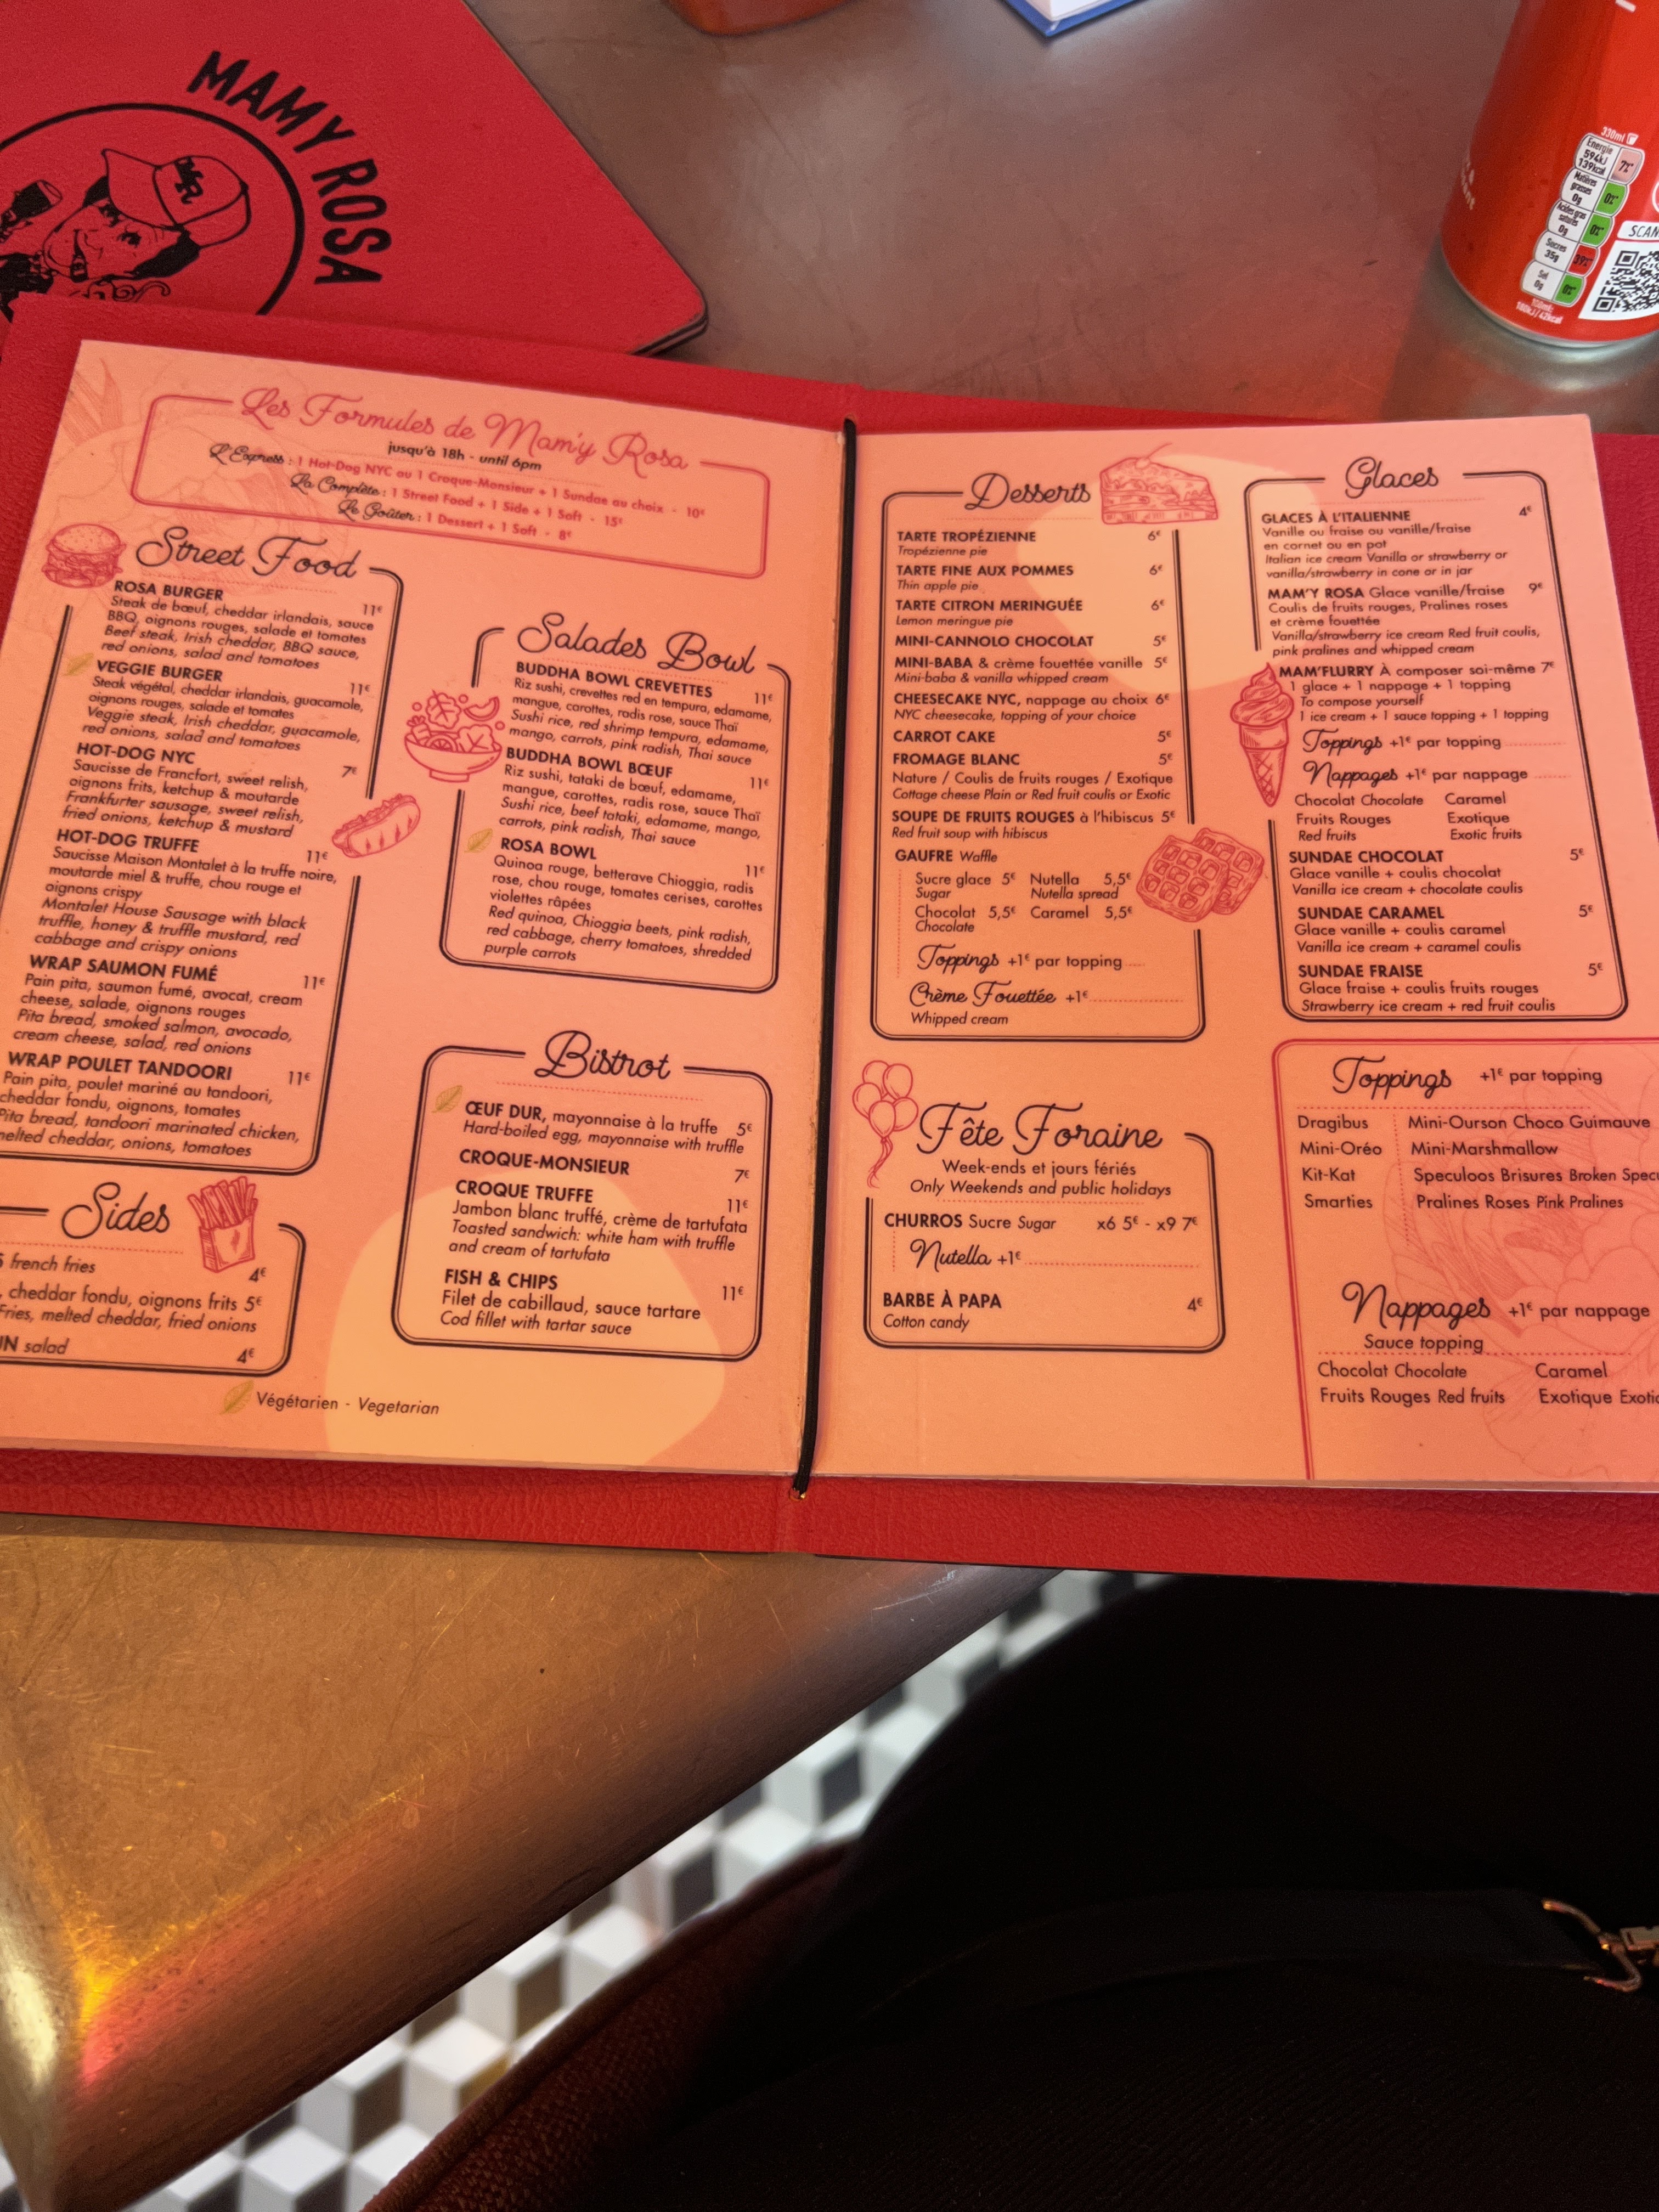 MAMY ROSA
MR
330ml
Energie
594kJ
139kcal
7%*
Matières
grasses
0g
0%*
Acides gras
saturés
0g
0%*
Sucres
35g
39%*
Sel
0g
0%*
100ml:
180kJ/42kcal
SCAN
Les Formules de Mam'y Rosa
jusqu'à 18h - until 6pm
L'Express : 1 Hot-Dog NYC ou 1 Croque-Monsieur + 1 Sundae au choix - 10€
La Complète : 1 Street Food + 1 Side + 1 Soft - 15€
Le Goûter : 1 Dessert + 1 Soft - 8€
Street Food
ROSA BURGER 11€
Steak de bœuf, cheddar irlandais, sauce
BBQ, oignons rouges, salade et tomates
Beef steak, Irish cheddar, BBQ sauce,
red onions, salad and tomatoes
VEGGIE BURGER 11€
Steak végétal, cheddar irlandais, guacamole,
oignons rouges, salade et tomates
Veggie steak, Irish cheddar, guacamole,
red onions, salad and tomatoes
HOT-DOG NYC 7€
Saucisse de Francfort, sweet relish,
oignons frits, ketchup & moutarde
Frankfurter sausage, sweet relish,
fried onions, ketchup & mustard
HOT-DOG TRUFFE 11€
Saucisse Maison Montalet à la truffe noire,
moutarde miel & truffe, chou rouge et
oignons crispy
Montalet House Sausage with black
truffle, honey & truffle mustard, red
cabbage and crispy onions
WRAP SAUMON FUMÉ 11€
Pain pita, saumon fumé, avocat, cream
cheese, salade, oignons rouges
Pita bread, smoked salmon, avocado,
cream cheese, salad, red onions
WRAP POULET TANDOORI 11€
Pain pita, poulet mariné au tandoori,
cheddar fondu, oignons, tomates
Pita bread, tandoori marinated chicken,
melted cheddar, onions, tomatoes
Sides
S french fries 4€
, cheddar fondu, oignons frits 5€
Fries, melted cheddar, fried onions
IN salad 4€
Végétarien - Vegetarian
Salades Bowl
BUDDHA BOWL CREVETTES 11€
Riz sushi, crevettes red en tempura, edamame,
mangue, carottes, radis rose, sauce Thaï
Sushi rice, red shrimp tempura, edamame,
mango, carrots, pink radish, Thai sauce
BUDDHA BOWL BŒUF 11€
Riz sushi, tataki de bœuf, edamame,
mangue, carottes, radis rose, sauce Thaï
Sushi rice, beef tataki, edamame, mango,
carrots, pink radish, Thai sauce
ROSA BOWL 11€
Quinoa rouge, betterave Chioggia, radis
rose, chou rouge, tomates cerises, carottes
violettes râpées
Red quinoa, Chioggia beets, pink radish,
red cabbage, cherry tomatoes, shredded
purple carrots
Bistrot
ŒUF DUR, mayonnaise à la truffe 5€
Hard-boiled egg, mayonnaise with truffle
CROQUE-MONSIEUR 7€
CROQUE TRUFFE 11€
Jambon blanc truffé, crème de tartufata
Toasted sandwich: white ham with truffle
and cream of tartufata
FISH & CHIPS 11€
Filet de cabillaud, sauce tartare
Cod fillet with tartar sauce
Desserts
TARTE TROPÉZIENNE 6€
Tropézienne pie
TARTE FINE AUX POMMES 6€
Thin apple pie
TARTE CITRON MERINGUÉE 6€
Lemon meringue pie
MINI-CANNOLO CHOCOLAT 5€
MINI-BABA & crème fouettée vanille 5€
Mini-baba & vanilla whipped cream
CHEESECAKE NYC, nappage au choix 6€
NYC cheesecake, topping of your choice
CARROT CAKE 5€
FROMAGE BLANC 5€
Nature / Coulis de fruits rouges / Exotique
Cottage cheese Plain or Red fruit coulis or Exotic
SOUPE DE FRUITS ROUGES à l'hibiscus 5€
Red fruit soup with hibiscus
GAUFRE Waffle
Sucre glace 5€ Nutella 5,5€
Sugar Nutella spread
Chocolat 5,5€ Caramel 5,5€
Chocolate
Toppings +1€ par topping
Crème Fouettée +1€
Whipped cream
Fête Foraine
Week-ends et jours fériés
Only Weekends and public holidays
CHURROS Sucre Sugar x6 5€ - x9 7€
Nutella +1€
BARBE À PAPA 4€
Cotton candy
Glaces
GLACES À L'ITALIENNE 4€
Vanille ou fraise ou vanille/fraise
en cornet ou en pot
Italian ice cream Vanilla or strawberry or
vanilla/strawberry in cone or in jar
MAM'Y ROSA Glace vanille/fraise 9€
Coulis de fruits rouges, Pralines roses
et crème fouettée
Vanilla/strawberry ice cream Red fruit coulis,
pink pralines and whipped cream
MAM'FLURRY À composer soi-même 7€
1 glace + 1 nappage + 1 topping
To compose yourself
1 ice cream + 1 sauce topping + 1 topping
Toppings +1€ par topping
Nappages +1€ par nappage
Chocolat Chocolate Caramel
Fruits Rouges Exotique
Red fruits Exotic fruits
SUNDAE CHOCOLAT 5€
Glace vanille + coulis chocolat
Vanilla ice cream + chocolate coulis
SUNDAE CARAMEL 5€
Glace vanille + coulis caramel
Vanilla ice cream + caramel coulis
SUNDAE FRAISE 5€
Glace fraise + coulis fruits rouges
Strawberry ice cream + red fruit coulis
Toppings +1€ par topping
Dragibus Mini-Ourson Choco Guimauve
Mini-Oréo Mini-Marshmallow
Kit-Kat Speculoos Brisures Broken Specu
Smarties Pralines Roses Pink Pralines
Nappages +1€ par nappage
Sauce topping
Chocolat Chocolate Caramel
Fruits Rouges Red fruits Exotique Exotic